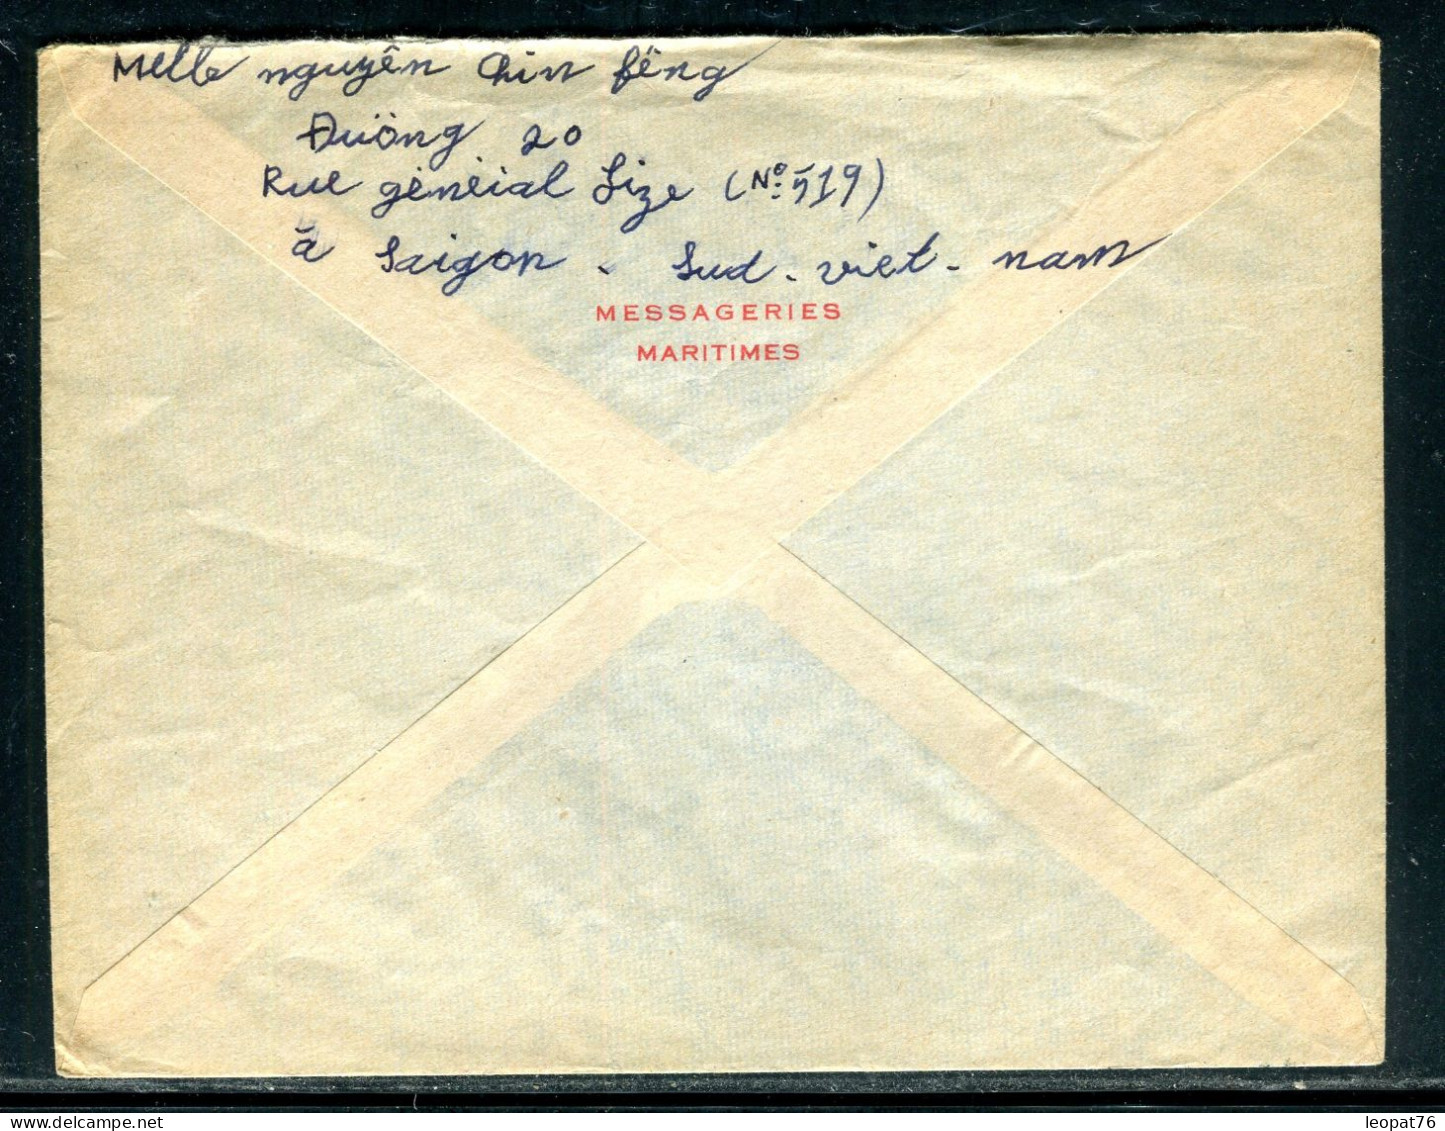 Melle nguyên Chin fêng
Đuöng 20
Rue général Lize (Nº: 519)
à Saigon - Sud - Viet - nam
MESSAGERIES
MARITIMES
leopat76